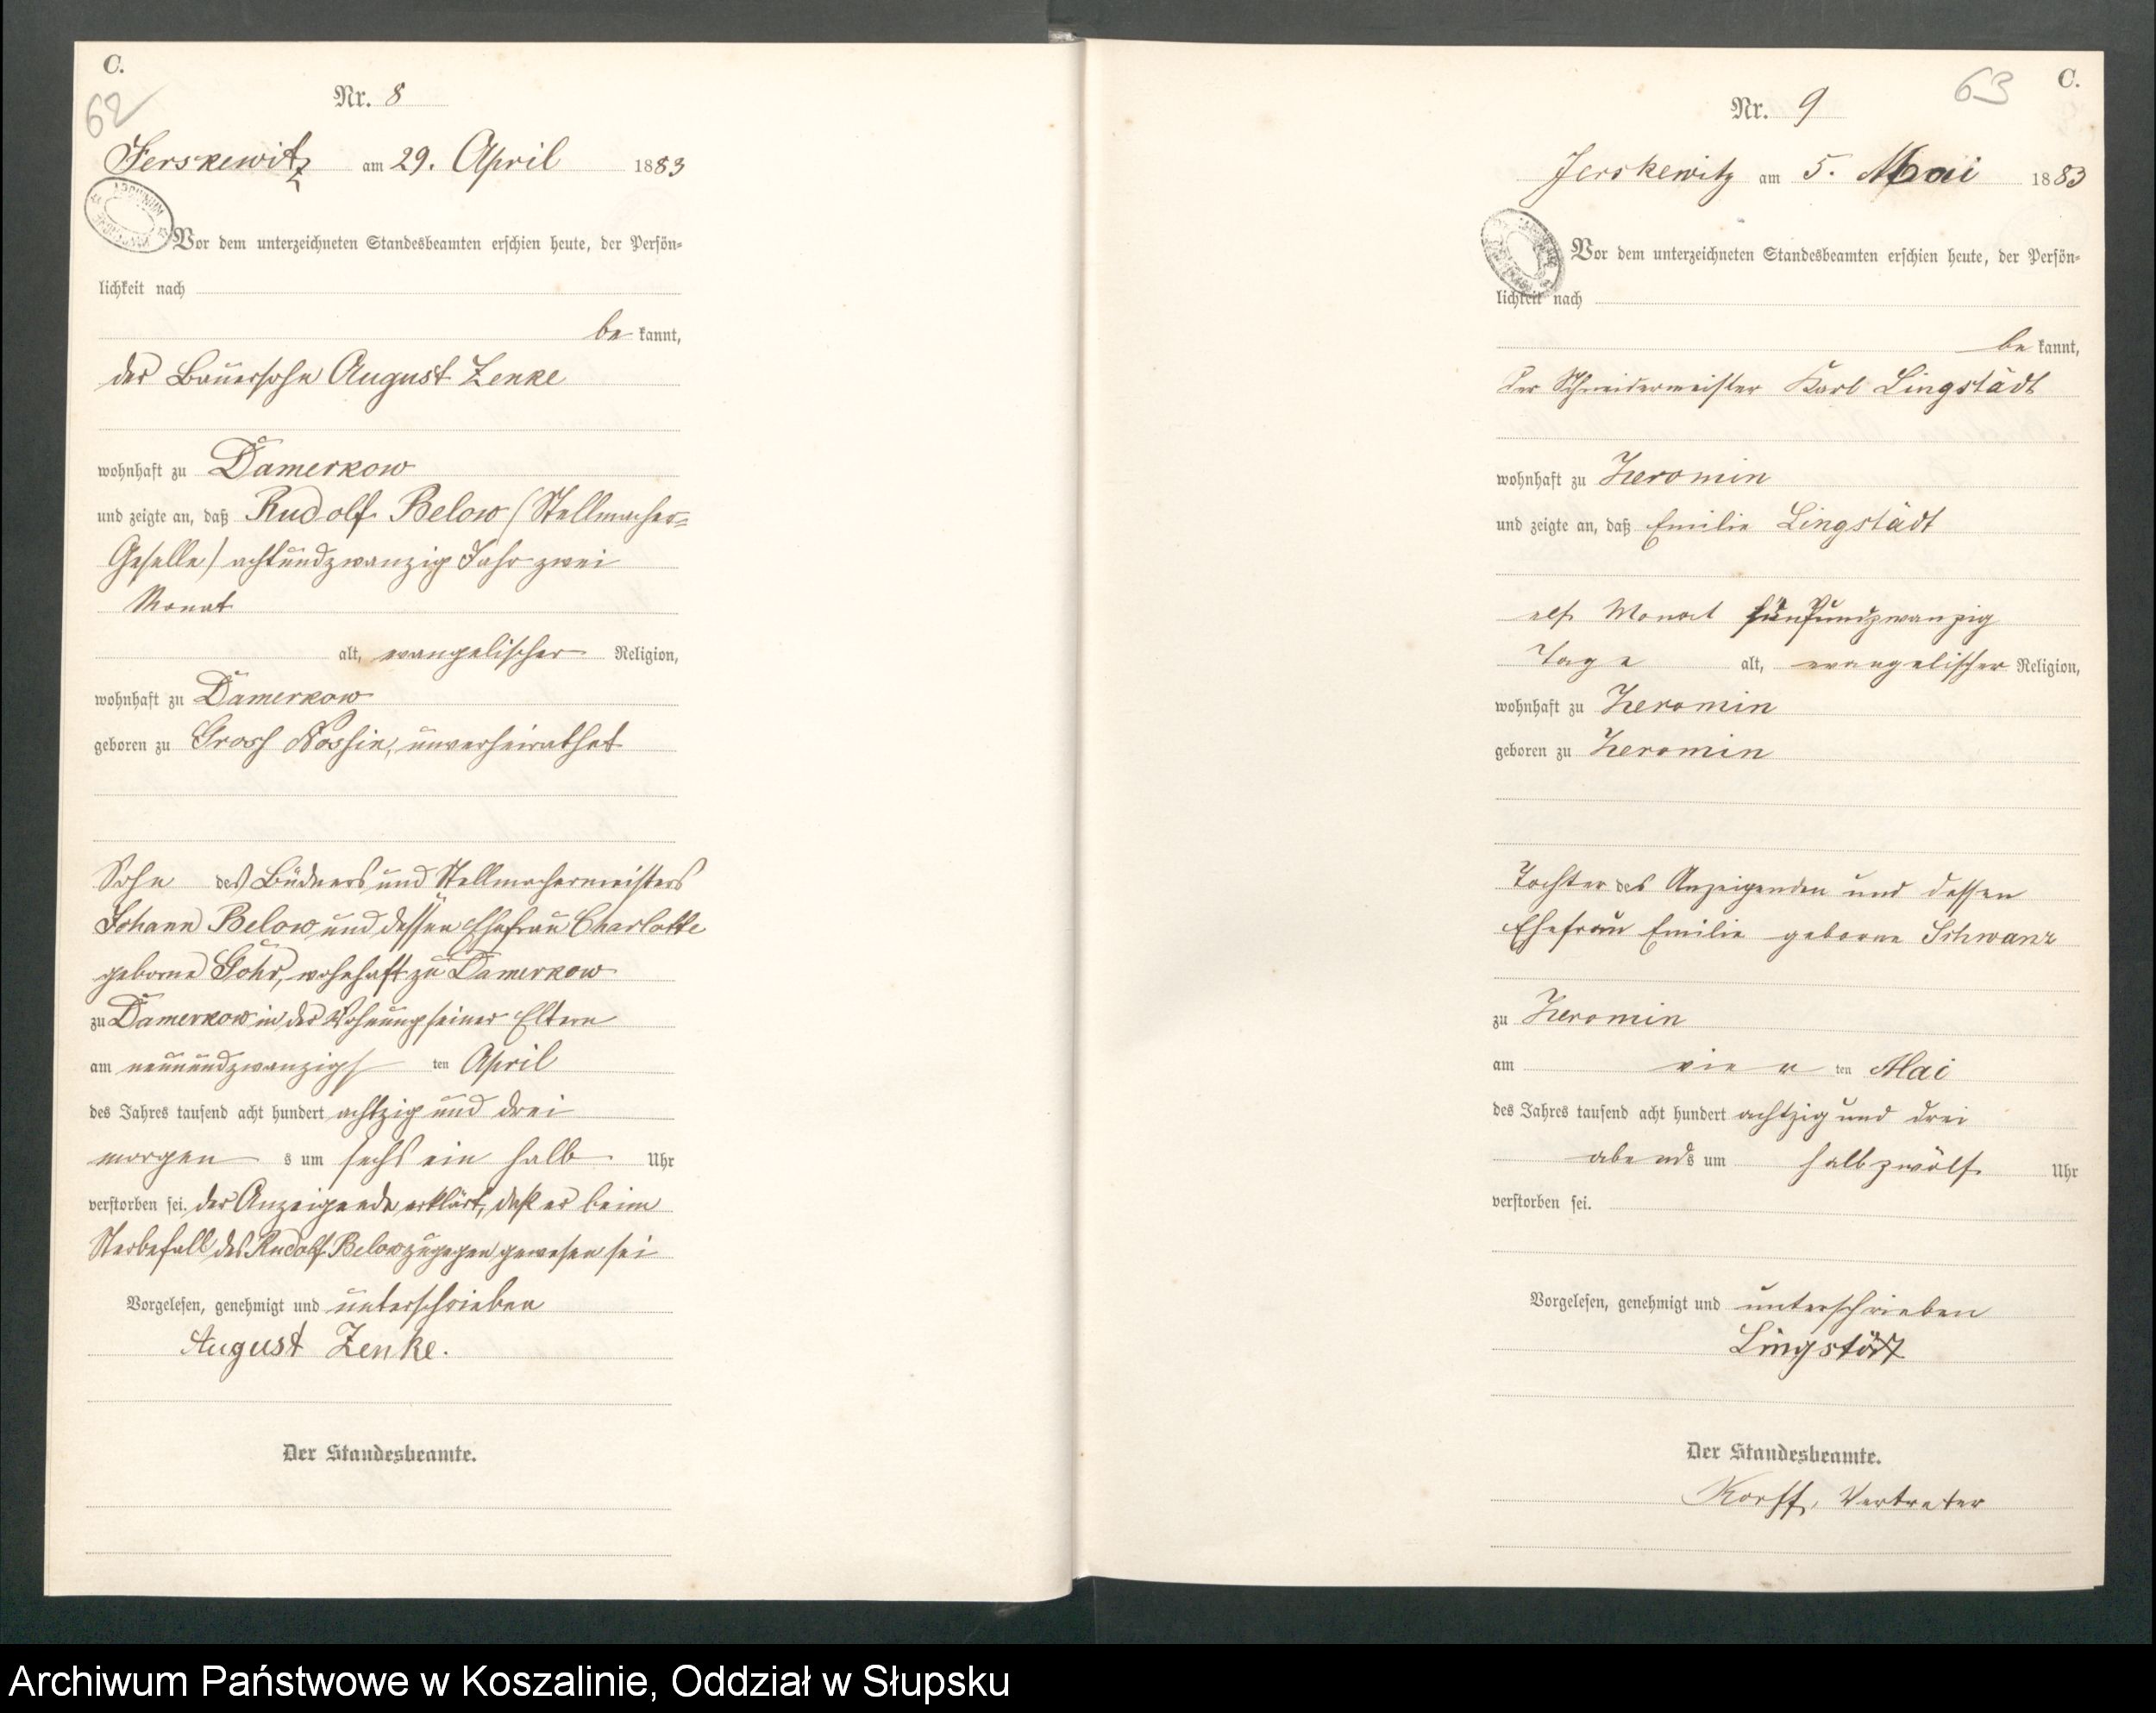 C.
62
Nr. 8
Jerskewitz am 29. April 1883
Vor dem unterzeichneten Standesbeamten erschien heute, der Persön-
lichkeit nach
be kannt,
der Bauersohn August Zenke
wohnhaft zu Damerkow
und zeigte an, daß Rudolf Below (Stellmacher-
Geselle) achtundzwanzig Jahr zwei
Monat
alt, evangelischer Religion,
wohnhaft zu Damerkow
geboren zu Gross Nossin, unverheirathet
Sohn des Büdners und Stellmachermeisters
Johann Below und dessen Ehefrau Charlotte
geborne Göhr, wohnhaft zu Damerkow
zu Damerkow in der Wohnung seiner Eltern
am neunundzwanzigs ten April
des Jahres tausend acht hundert achtzig und drei
morgen s um sechs ein halb Uhr
verstorben sei. der Anzeigende erklärt, daß er beim
Sterbefall des Rudolf Below zugegen gewesen sei
Vorgelesen, genehmigt und unterschrieben
August Zenke.
Der Standesbeamte.
C.
63
Nr. 9
Jerskewitz am 5. Mai 1883
Vor dem unterzeichneten Standesbeamten erschien heute, der Persön-
lichkeit nach
be kannt,
der Schneidermeister Karl Lingstädt
wohnhaft zu Zeromin
und zeigte an, daß Emilie Lingstädt
elf Monat fünfundzwanzig
Tage alt, evangelischer Religion,
wohnhaft zu Zeromin
geboren zu Zeromin
Tochter des Anzeigenden und dessen
Ehefrau Emilie geborne Schwanz
zu Zeromin
am vier ten Mai
des Jahres tausend acht hundert achtzig und drei
abends um halb zwölf Uhr
verstorben sei.
Vorgelesen, genehmigt und unterschrieben
Lingstädt
Der Standesbeamte.
Korff, Vertreter
Archiwum Państwowe w Koszalinie, Oddział w Słupsku